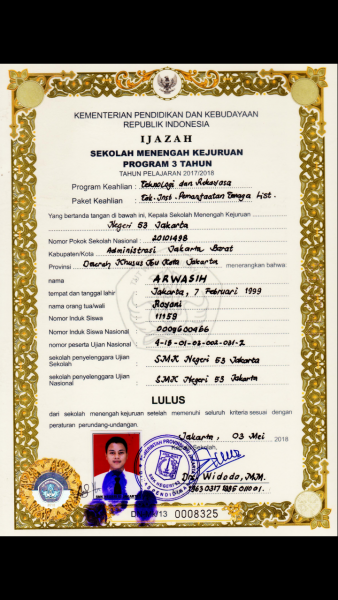 KEMENTERIAN PENDIDIKAN DAN KEBUDAYAAN
REPUBLIK INDONESIA
IJAZAH
SEKOLAH MENENGAH KEJURUAN
PROGRAM 3 TAHUN
TAHUN PELAJARAN 2017/2018
Program Keahlian : Teknologi dan Rekayasa
Paket Keahlian : Tek. Inst. Pemanfaatan Tenaga List.
Yang bertanda tangan di bawah ini, Kepala Sekolah Menengah Kejuruan
Negeri 53 Jakarta
Nomor Pokok Sekolah Nasional : 20101498
Kabupaten/Kota Administrasi Jakarta Barat
Provinsi Daerah Khusus Ibu Kota Jakarta menerangkan bahwa:
nama ARWASIH
tempat dan tanggal lahir : Jakarta, 7 Februari 1999
nama orang tua/wali : Royani
Nomor Induk Siswa : 11159
Nomor Induk Siswa Nasional :
nomor peserta Ujian Nasional : 4-18-01-03-002-031-2
sekolah penyelenggara Ujian Sekolah : SMK Negeri 53 Jakarta
sekolah penyelenggara Ujian Nasional : SMK Negeri 53 Jakarta
LULUS
dari sekolah menengah kejuruan setelah memenuhi seluruh kriteria sesuai dengan
peraturan perundang-undangan.
Jakarta, 03 Mei 2018
Sekolah,
Drs. Widodo, M.M.
0008325